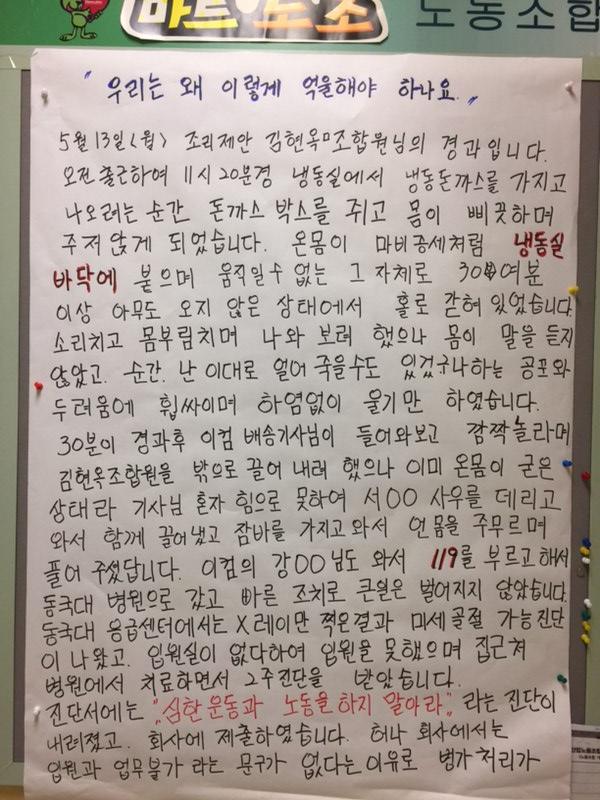 마트노조
노동조합
"우리는 왜 이렇게 억울해야 하나요."
5월 13일<월> 조리제안 김현옥조합원님의 경과입니다.
오전 출근하여 11시 20분경 냉동실에서 냉동돈까스를 가지고
나오려는 순간 돈까스 박스를 쥐고 몸이 삐끗하며
주저앉게 되었습니다. 온몸이 마비증세처럼 냉동실
바닥에 붙으며 움직일수 없는 그 자체로 30여분
이상 아무도 오지 않은 상태에서 홀로 갇혀있었습니다.
소리치고 몸부림치며 나와 보려 했으나 몸이 말을 듣지
않았고. 순간. 난 이대로 얼어 죽을수도 있겠구나하는 공포와
두려움에 휩싸이며 하염없이 울기만 하였습니다.
30분이 경과후 이컴 배송기사님이 들어와보고 깜짝놀라며
김현옥조합원을 밖으로 끌어 내려 했으나 이미 온몸이 굳은
상태라 기사님 혼자 힘으로 못하여 서OO 사우를 데리고
와서 함께 끌어냈고 잠바를 가지고와서 언몸을 주무르며
풀어 주셨답니다. 이컴의 강OO님도 와서 119를 부르고해서
동국대 병원으로 갔고 빠른 조치로 큰일은 벌어지지 않았습니다.
동국대 응급센터에서는 X레이만 찍은결과 미세골절 가능진단
이 나왔고. 입원실이 없다하여 입원을 못했으며 집근처
병원에서 치료하면서 2주진단을 받았습니다.
진단서에는 "심한 운동과 노동을 하지 말아라" 라는 진단이
내려졌고. 회사에 제출하였습니다. 허나 회사에서는
입원과 업무불가 라는 문구가 없다는이유로 병가 처리가